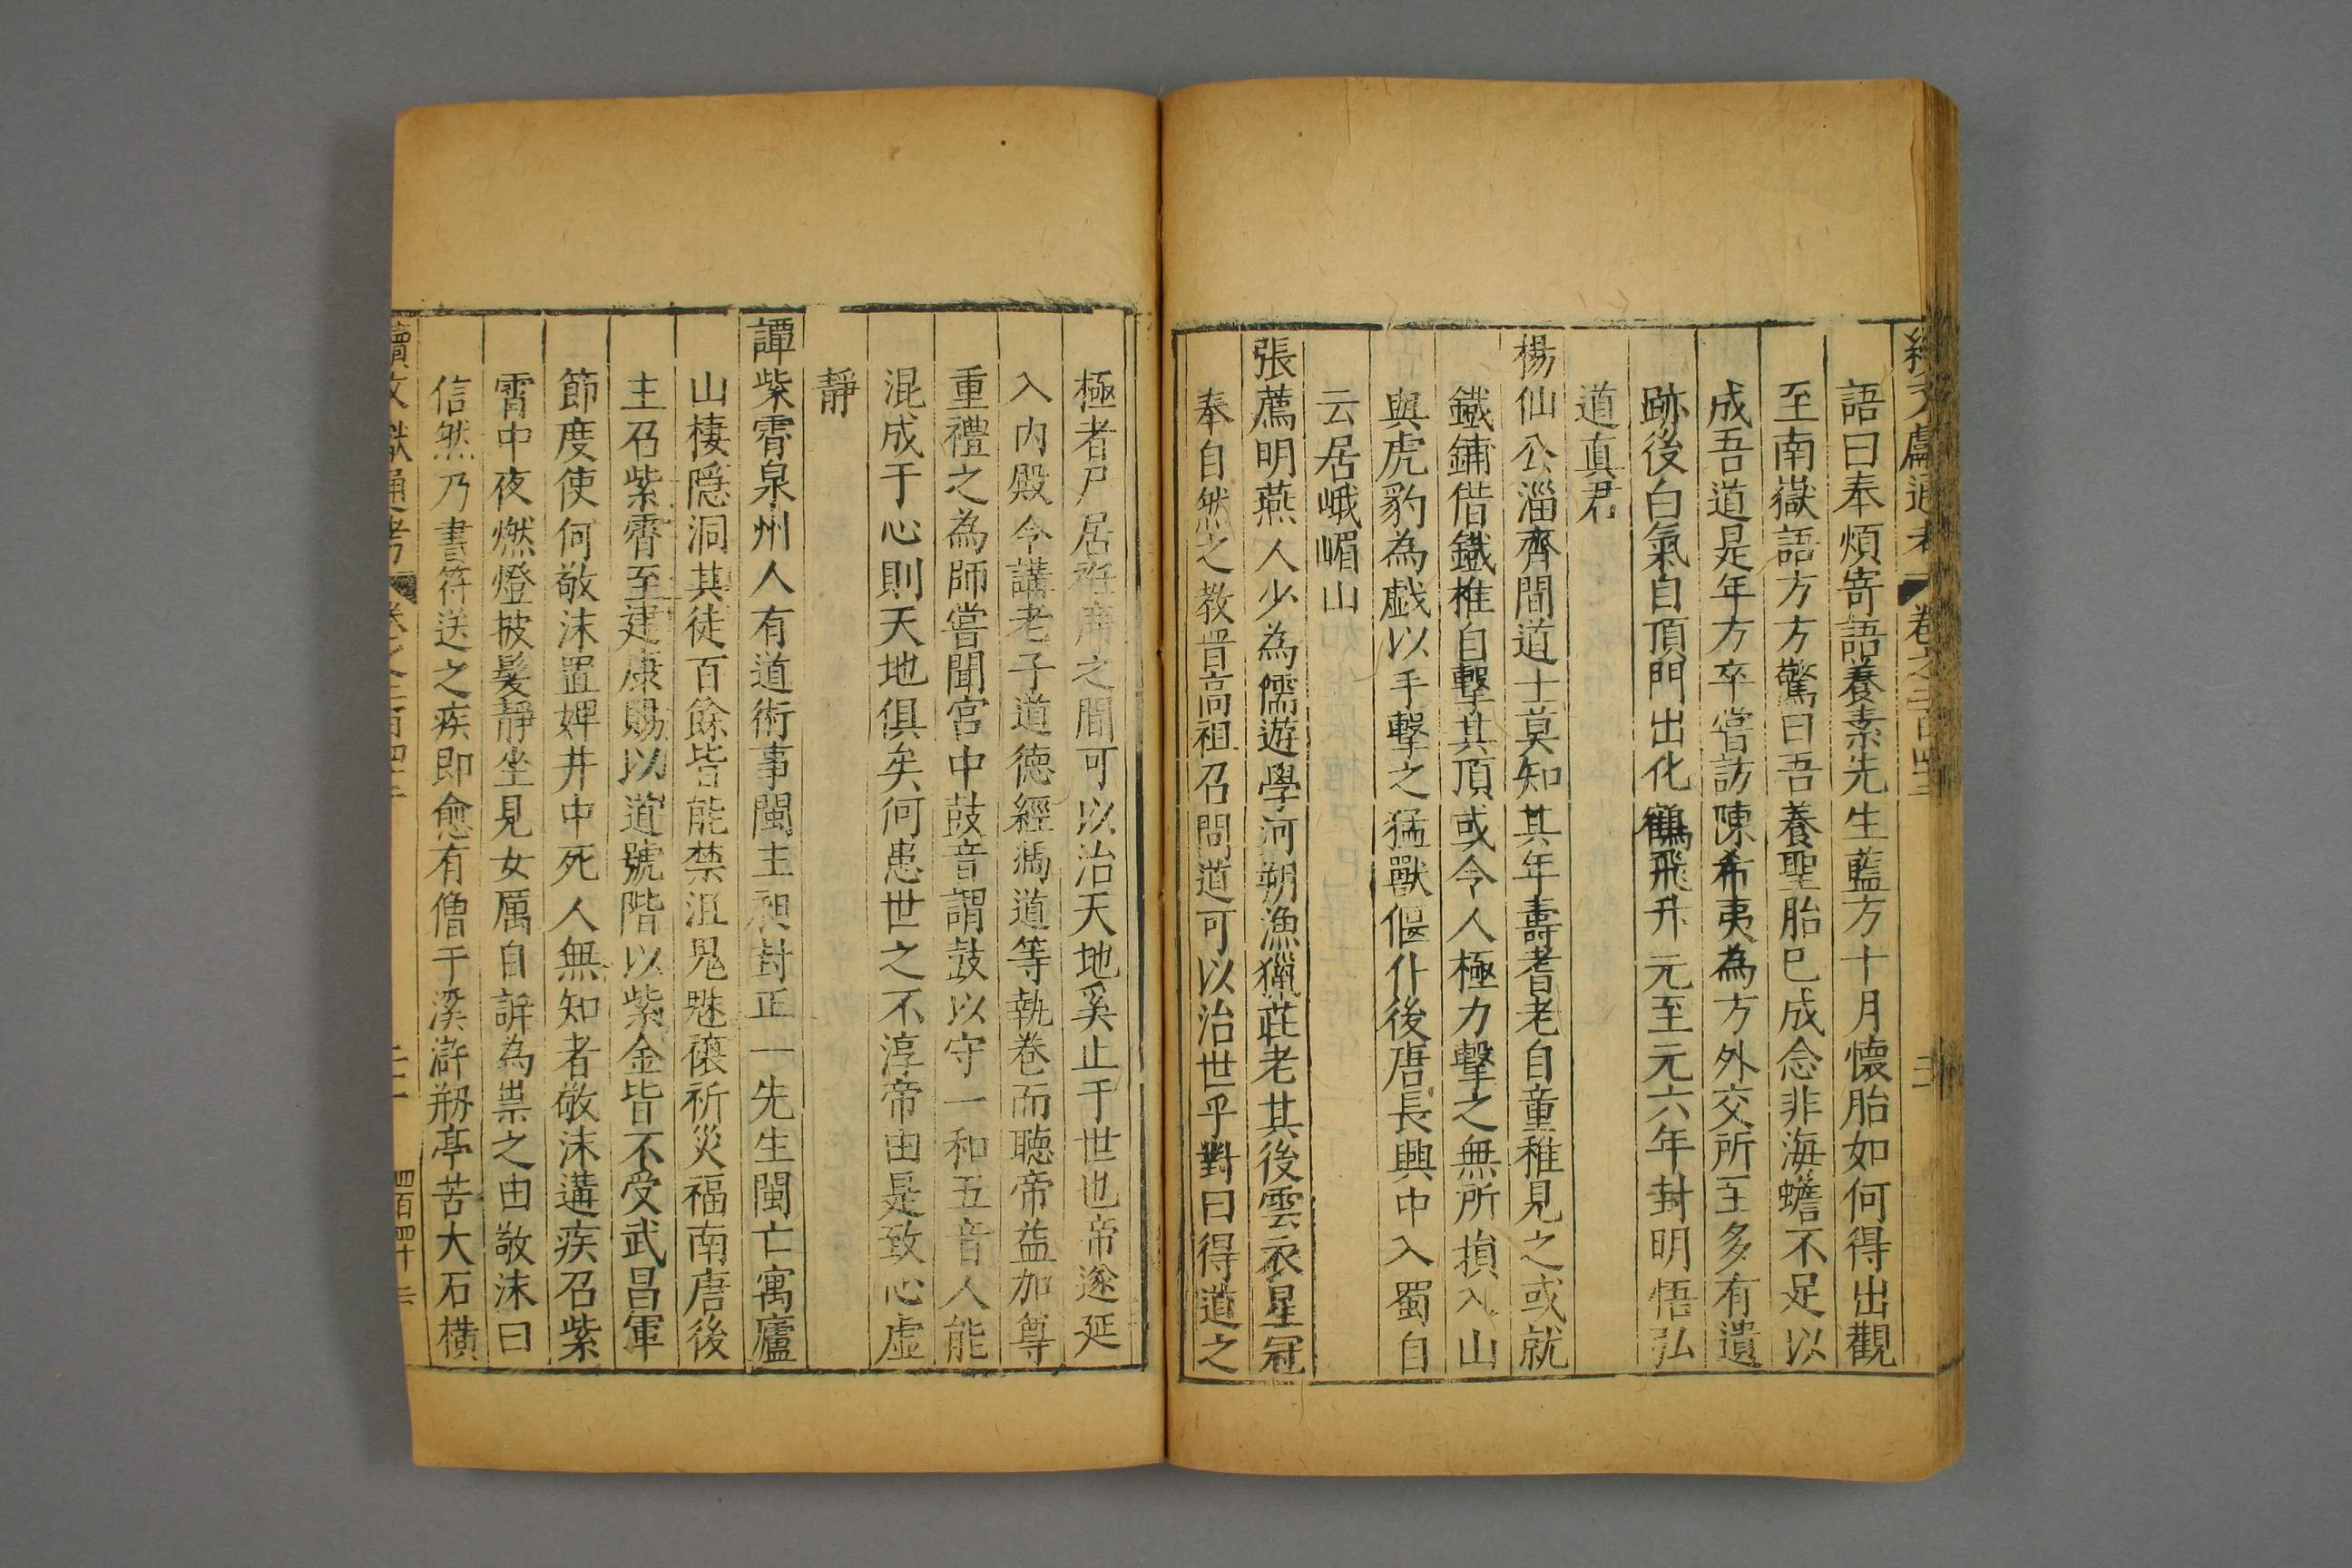 續文獻通考 卷之二百四
語曰奉煩寄語養素先生藍方十月懷胎如何得出觀
至南嶽語方方驚曰吾養聖胎已成念非海蟾不足以
成吾道是年方卒嘗訪陳希夷為方外交所至多有遺
跡後白氣自頂門出化鶴飛升元至元六年封明悟弘
道真君
楊仙公淄齊間道士莫知其年壽耆老自童稚見之或就
鐵鋪借鐵椎自擊其頂或令人極力擊之無所損入山
與虎豹為戲以手擊之猛獸偃仆後唐長興中入蜀自
云居峨嵋山
張薦明燕人少為儒遊學河朔漁獵莊老其後雲衣星冠
奉自然之教晉高祖召問道可以治世乎對曰得道之
極者尸居袵席之間可以治天地奚止于世也帝遂延
入内殿令講老子道德經為道等執卷而聽帝益加尊
重禮之為師嘗聞宮中鼓音謂鼓以守一和五音人能
混成于心則天地俱矣何患世之不淳帝由是致心虛
靜
譚紫霄泉州人有道術事閩主昶封正一先生閩亡寓廬
山棲隱洞其徒百餘皆能禁沮鬼魅禳祈災福南唐後
主召紫霄至建康賜以道號階以紫金皆不受武昌軍
節度使何敬洙置婢井中死人無知者敬洙遘疾召紫
霄中夜燃燈披髮靜坐見女厲自訴為祟之由敬洙曰
信然乃書符送之疾即愈有僧于溪滸剏亭苦大石橫
續文獻通考 卷之二百四 四百四十